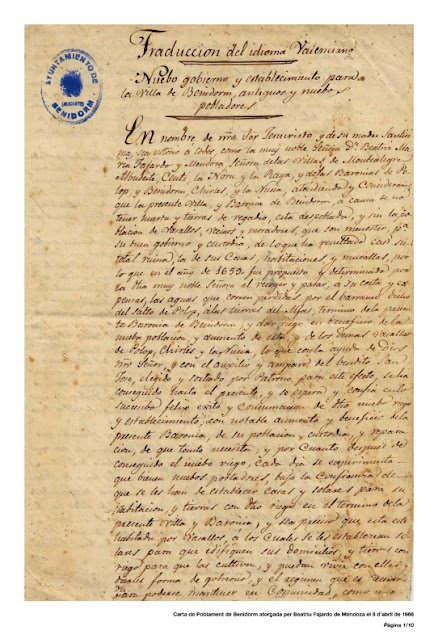 Traduccion del idioma Valenciano
AYUNTAMIENTO DE
BENIDORM
Nuebo gobierno, y establecimiento para
la Villa de Benidorm, antiguos y nuebos
pobladores
En nombre de nro Sor Jesucristo, y de su madre Santisi
ma, sea notorio a todos como la muy noble Señora Da. Beatriz Ma
ria Fajardo y Mendoza Señora de las Villas de Montealegre
Ceuti, la Ñora y la Raya, y de las Baronias de Po
lop, y Benidorm, Chirles, y la Nucia, atendiendo y Considerando
que la presente Villa, y Baronia de Benidorm, a causa de no
tener huerta y tierras de regadio, esta despoblada, y sin la po
blacion de Vasallos, Vecinos y moradores, que son menester, pa.
su buen gobierno y custodia, de lo que ha resultado casi su
total ruina, la de sus Casas, habitaciones, y murallas, por
lo que en el año de 1653 fue propuesto y determinado por
la dha muy noble Señora el recoger y pasar, a su costa y ex
pensas, las aguas que corren perdidas por el barranco dicho
del Salto de Polop, a las tierras del Alfas, termino de la presen
te Baronia de Benidorm, y dar riego en beneficio de la
nueba poblacion y aumento de esta, y de los demas Vasallos
de Polop, Chirles y la Nucia, lo que con la ayuda de Dios
nro Señor, y con el auxilio y amparo del bendito San
Jose, elegido y sorteado por Patron para este efeto, se ha
conseguido hasta el presente, y se espera y confia en lo
sucesibo feliz exito y Consumacion de dho nuebo riego
y establecimiento, con notable aumento y beneficio de la
presente Baronia, de su poblacion, custodia, y repara
cion, de que tanto necesita, y por Cuanto despues de
conseguido el nuebo riego, Cada dia se experimenta
que vienen nuebos pobladores, bajo la Confianza de
que se les han de establecer casas y solares para su
habitacion, y tierras con dho riego en el termino de la
presente Villa y Baronia, y sea preciso que esta este
habitada por Vasallos, a los Cuales se les establezcan so
lares para que edifiquen sus domicilios, y tierras con
riego para que las cultiven, y puedan vivir con ellas y
darles forma de gobierno, y el regimen que es necesa
rio para poderse mantener en Comunidad, como uno
Carta de Poblament de Benidorm atorgada per Beatriu Fajardo de Mendoza el 8 d'abril de 1666
Página 1/10